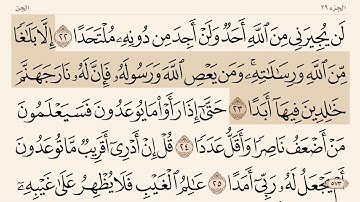 الجزء ٢٩ الجن
لَن يُجِيرَنِي مِنَ ٱللَّهِ أَحَدٌ وَلَنْ أَجِدَ مِن دُونِهِۦ مُلْتَحَدًا ٢٢ إِلَّا بَلَٰغًا
مِّنَ ٱللَّهِ وَرِسَٰلَٰتِهِۦ ۚ وَمَن يَعْصِ ٱللَّهَ وَرَسُولَهُۥ فَإِنَّ لَهُۥ نَارَ جَهَنَّمَ
خَٰلِدِينَ فِيهَآ أَبَدًا ٢٣ حَتَّىٰٓ إِذَا رَأَوْا۟ مَا يُوعَدُونَ فَسَيَعْلَمُونَ
مَنْ أَضْعَفُ نَاصِرًا وَأَقَلُّ عَدَدًا ٢٤ قُلْ إِنْ أَدْرِىٓ أَقَرِيبٌ مَّا تُوعَدُونَ
أَمْ يَجْعَلُ لَهُۥ رَبِّىٓ أَمَدًا ٢٥ عَٰلِمُ ٱلْغَيْبِ فَلَا يُظْهِرُ عَلَىٰ غَيْبِهِۦٓ
٥٧٣